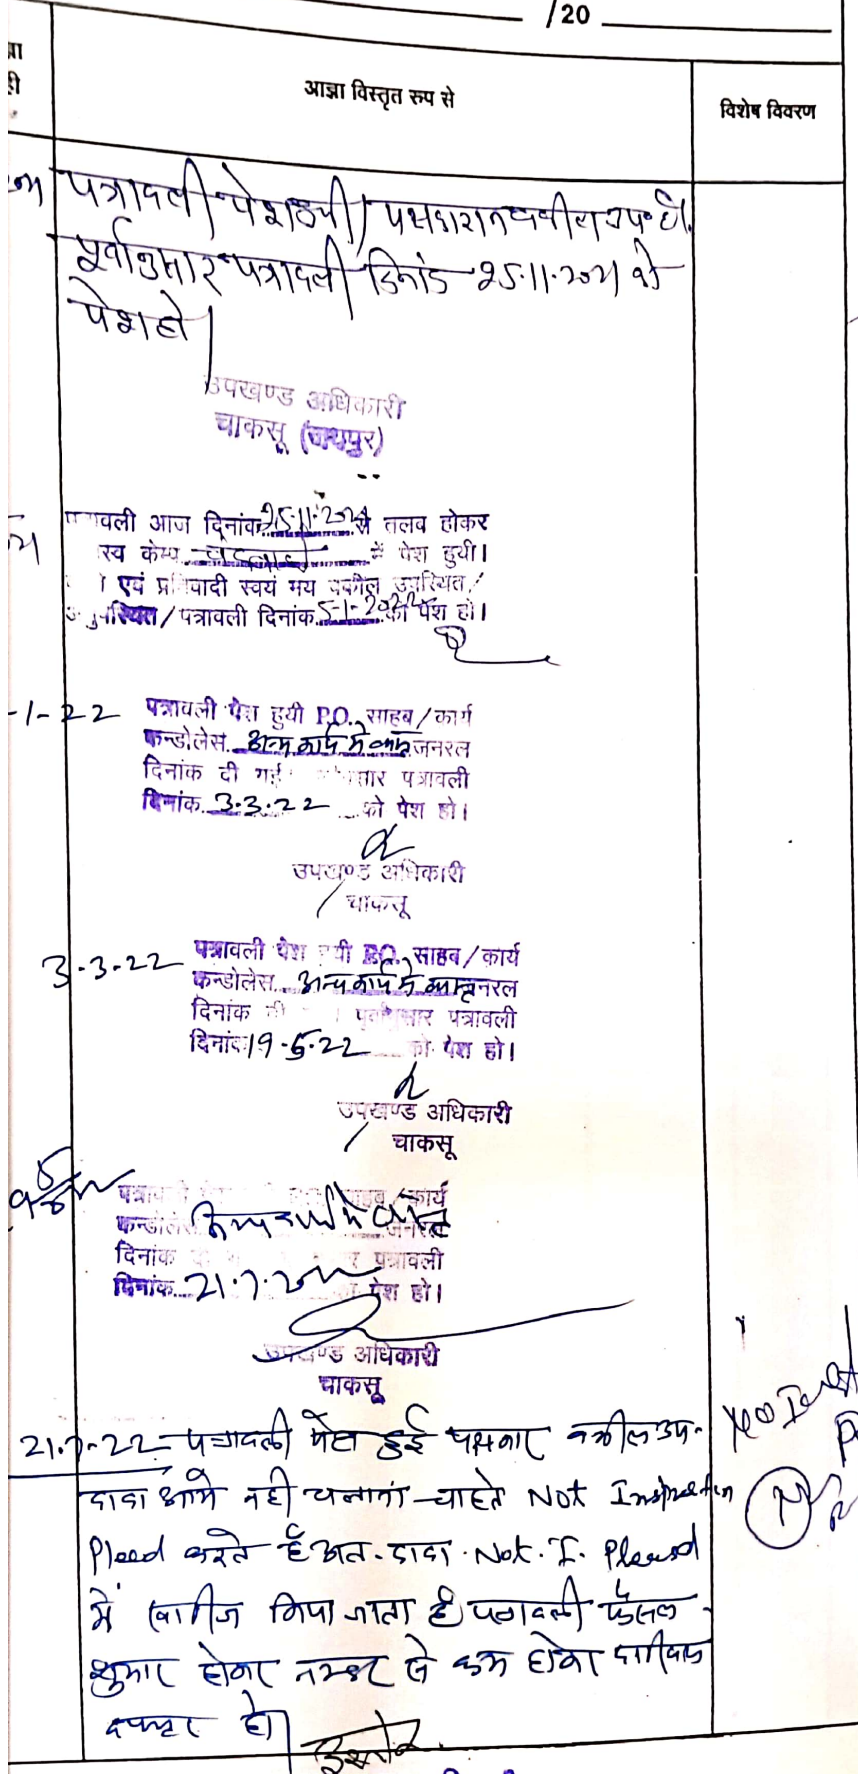 /20
आज्ञा विस्तृत रुप से
विशेष विवरण
पत्रावली पेश हुयी। पक्षकारान वकील उप० है।
पूर्वानुसार पत्रावली दिनांक 25.11.2021 को
पेश हो।
उपखण्ड अधिकारी
चाकसू (जयपुर)
वली आज दिनांक 25.11.2021 से तलव होकर
स्व केम्प में पेश हुयी।
एवं प्रतिवादी स्वयं मय वकील उपस्थित/
पस्थित/पत्रावली दिनांक 5-1-2022 को पेश हो।
-1-22 पत्रावली पेश हुयी P.O. साहब/कार्य
कन्डोलेस अन्य कार्य में व्यस्त जनरल
दिनांक दी गई सार पत्रावली
दिनांक 3.3.22 को पेश हो।
उपखण्ड अधिकारी
चाकसू
3.3.22 पत्रावली पेश हुयी P.O. साहब/कार्य
कन्डोलेस अन्य कार्य में व्यस्त जनरल
दिनांक पूर्वानुसार पत्रावली
दिनांक 19.5.22 को पेश हो।
उपखण्ड अधिकारी
चाकसू
साहब/कार्य
कन्डोलेस अन्य कार्य में व्यस्त जनरल
दिनांक पत्रावली
दिनांक 21.7.2022 पेश हो।
उपखण्ड अधिकारी
चाकसू
21.7-22 पत्रावली पेश हुई पक्षकार वकील उप-
दावा आगे नही चलाना चाहते Not
Pleed करते है अत. दावा. Not. I. Pleesd
में खारीज किया जाता है पत्रावली फैसल
शुमार होकर नम्बर से कम होकर दाखिल
दफ्तर हो।